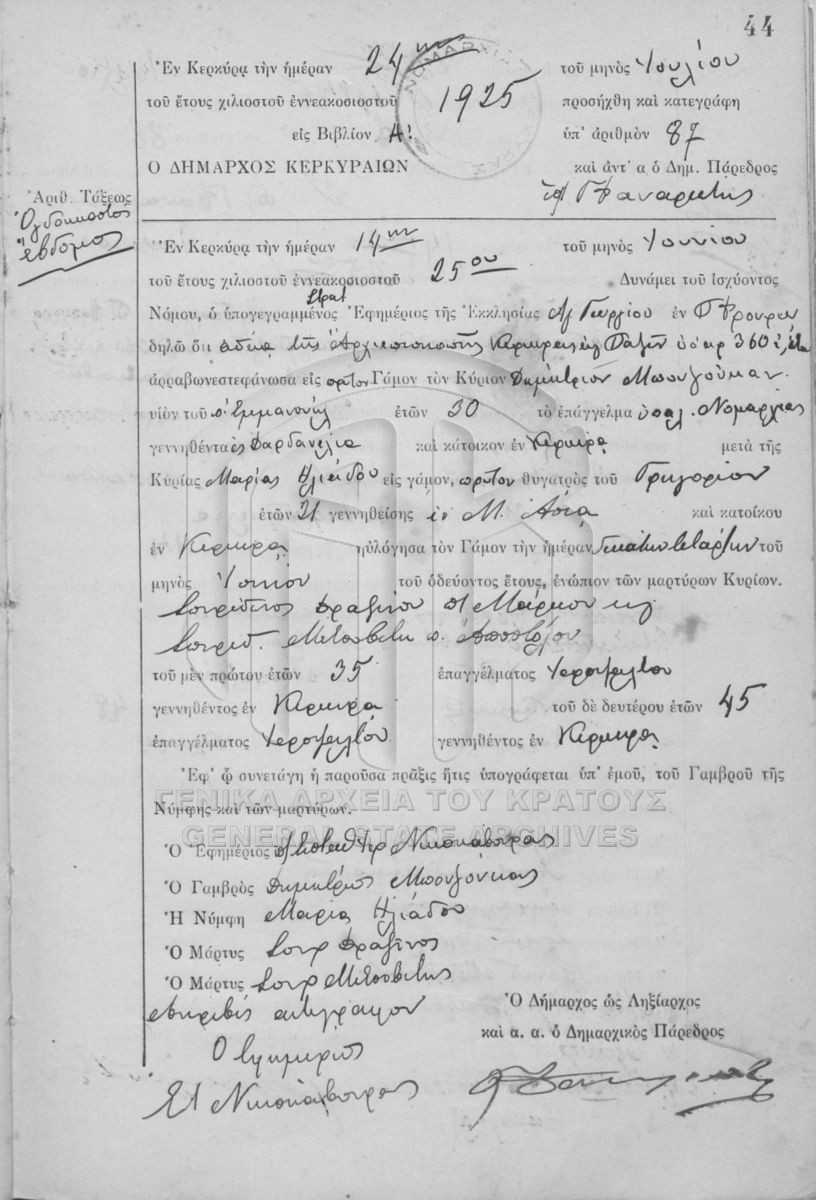 44
Ἐν Κερκύρᾳ τὴν ἡμέραν 24ην τοῦ μηνὸς Ἰουλίου
τοῦ ἔτους χιλιοστοῦ ἐννεακοσιοστοῦ 1925 προσήχθη καὶ κατεγράφη
εἰς Βιβλίον Α' ὑπ' ἀριθμὸν 87
Ο ΔΗΜΑΡΧΟΣ ΚΕΡΚΥΡΑΙΩΝ καὶ ἀντ' α ὁ Δημ. Πάρεδρος
Ἀριθ. Τάξεως
Ὀγδοηκοστὸς
ἕβδομος
Ἐν Κερκύρᾳ τὴν ἡμέραν 14ην τοῦ μηνὸς Ἰουνίου
τοῦ ἔτους χιλιοστοῦ ἐννεακοσιοστοῦ 25ου Δυνάμει τοῦ ἰσχύοντος
Νόμου, ὁ ὑπογεγραμμένος Στρατ Ἐφημέριος τῆς Ἐκκλησίας Ἁγ Γεωργίου ἐν Φρουρίῳ
δηλῶ ὅτι ἀδείᾳ τῆς Ἀρχιεπισκοπῆς Κερκύρας καὶ Παξῶν ὑπ' ἀρ 360
ἀρραβωνεστεφάνωσα εἰς πρῶτον Γάμον τὸν Κύριον Δημήτριον Μπουζούκαν
υἱὸν τοῦ Ἐμμανουὴλ ἐτῶν 30 τὸ ἐπάγγελμα ὑπαλ. Νομαρχίας
γεννηθέντα ἐς Δαρδανέλια καὶ κάτοικον ἐν Κερκύρᾳ μετὰ τῆς
Κυρίας Μαρίας Ἠλιάδου εἰς γάμον, πρῶτον θυγατρὸς τοῦ Γρηγορίου
ἐτῶν 21 γεννηθείσης ἐν Μ. Ἀσίᾳ καὶ κατοίκου
ἐν Κερκύρᾳ ηὐλόγησα τὸν Γάμον τὴν ἡμέραν δεκάτην τετάρτην τοῦ
μηνὸς Ἰουνίου τοῦ ὁδεύοντος ἔτους, ἐνώπιον τῶν μαρτύρων Κυρίων.
Σπυρίδωνος Μάρκου καὶ
Σπυριδ. Ἀποστόλου
τοῦ μὲν πρώτου ἐτῶν 35 ἐπαγγέλματος Ἱεροψάλτου
γεννηθέντος ἐν Κερκύρᾳ τοῦ δὲ δευτέρου ἐτῶν 45
ἐπαγγέλματος Ἱεροψάλτου γεννηθέντος ἐν Κερκύρᾳ
Ἐφ' ᾧ συνετάγη ἡ παροῦσα πρᾶξις ἥτις ὑπογράφεται ὑπ' ἐμοῦ, τοῦ Γαμβροῦ τῆς
Νύμφης καὶ τῶν μαρτύρων.
ΓΕΝΙΚΑ ΑΡΧΕΙΑ ΤΟΥ ΚΡΑΤΟΥΣ
GENERAL STATE ARCHIVES
Ὁ Ἐφημέριος
Ὁ Γαμβρὸς Δημήτριος Μπουζούκας
Ἡ Νύμφη Μαρία Ἠλιάδου
Ὁ Μάρτυς Σπυρ
Ὁ Μάρτυς Σπυρ
Ἀκριβὲς ἀντίγραφον
Ὁ Ἐφημέριος
Ὁ Δήμαρχος ὡς Ληξίαρχος
καὶ α. α. ὁ Δημαρχικὸς Πάρεδρος